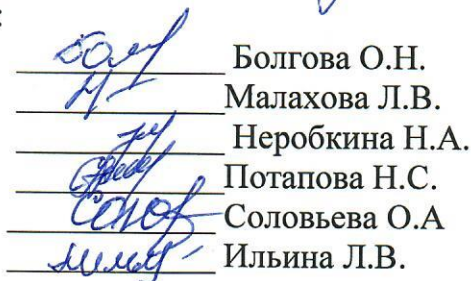 Болгова О.Н.
Малахова Л.В.
Неробкина Н.А.
Потапова Н.С.
Соловьева О.А
Ильина Л.В.